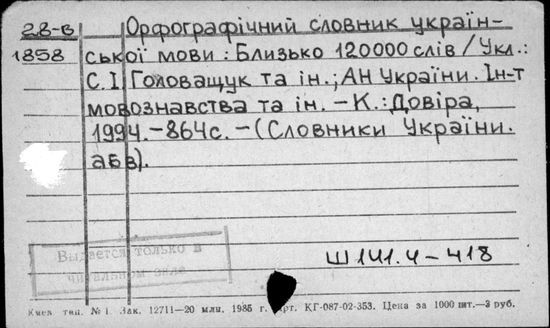 28-в Орфографічний словник україн-
1858 ської мови: Близько 120000 слів / Укл.:
С.І. Головащук та ін.; АН України. Ін-т
мовознавства та ін. - К.: Довіра,
1994. - 864с. - (Словники України.
абв).
Выдается только в
читальном зале
Ш141.4-418
Киев тип. № 1. Зак. 12711—20 млн. 1985 г. Арт. КГ-087-02-353. Цена за 1000 шт.—3 руб.